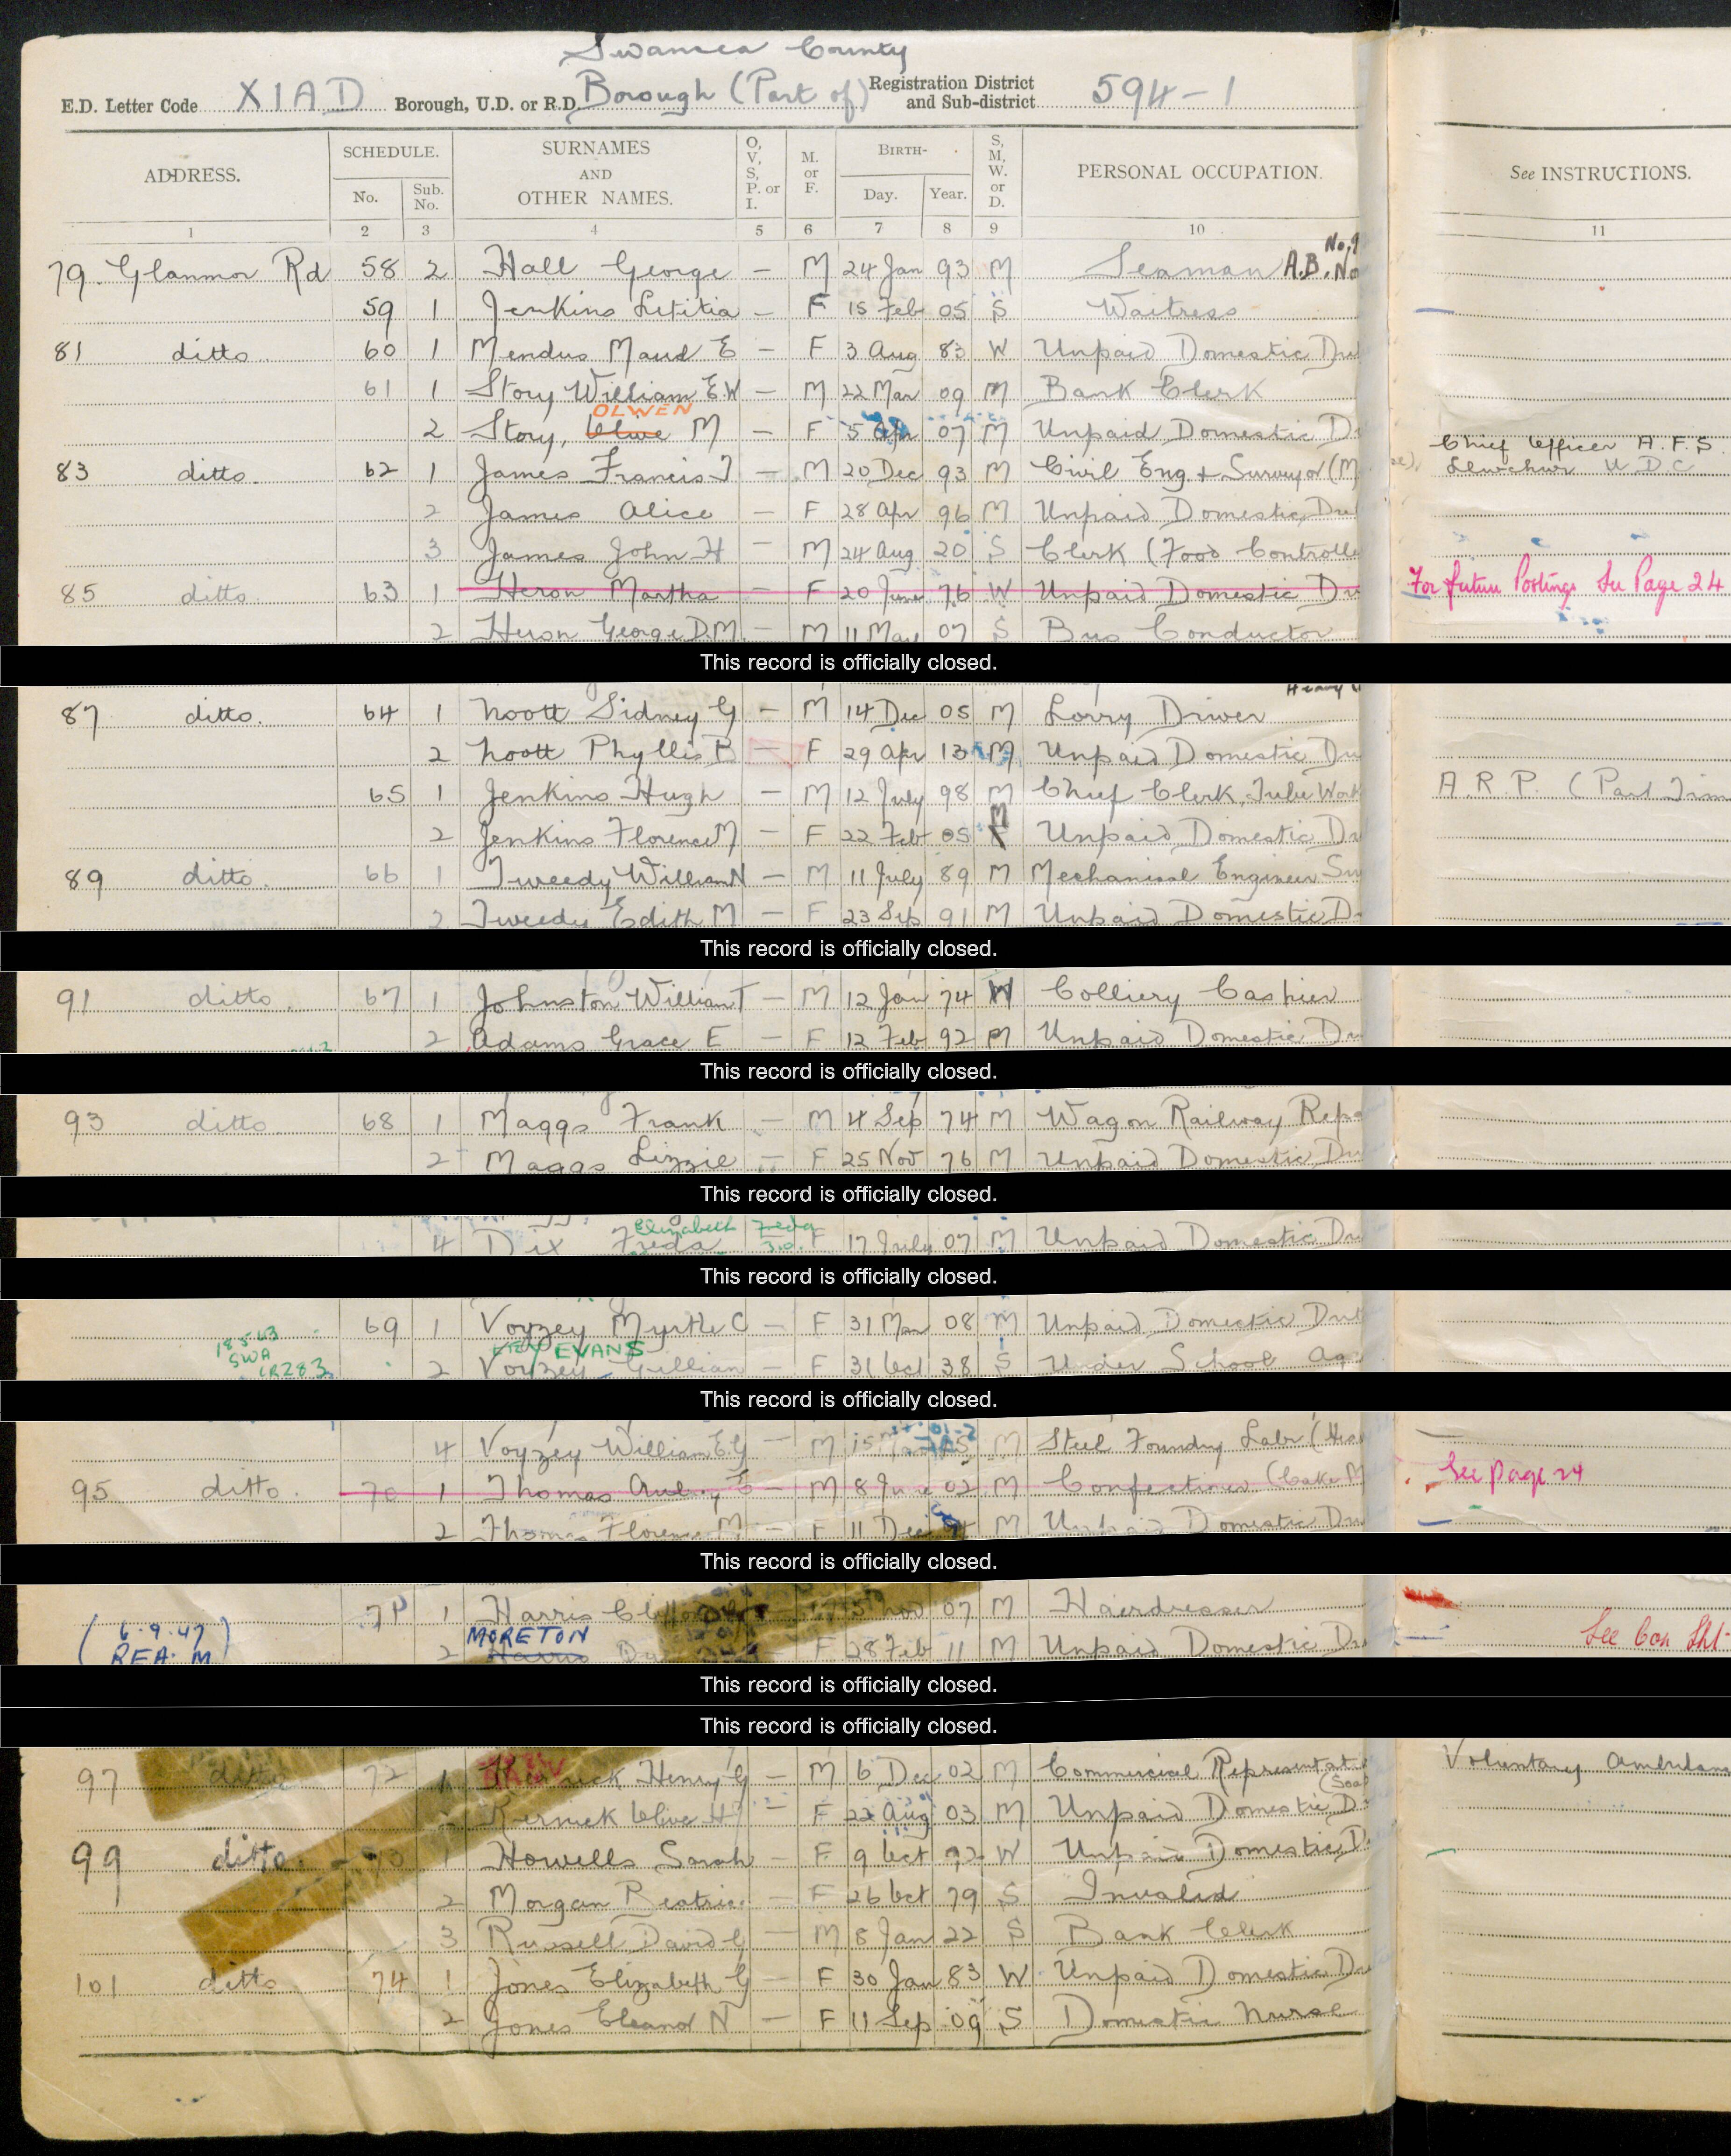 Swansea County
E.D. Letter Code X I A D Borough, U.D. or R.D. Borough (Part of) Registration District and Sub-district 594-1
ADDRESS. SCHEDULE. No. Sub. No. SURNAMES AND OTHER NAMES. O, V, S, P. or I. M. or F. BIRTH- Day. Year. S, M, W. or D. PERSONAL OCCUPATION. See INSTRUCTIONS.
1 2 3 4 5 6 7 8 9 10 11
79. Glanmor Rd 58 2 Hall George — M 24 Jan 93 M Seaman A.B. No
59 1 Jenkins Letitia — F 15 Feb 05 S Waitress
81 ditto. 60 1 Mendus Maud E — F 3 Aug 83 W Unpaid Domestic Dut
61 1 Story William E.W — M 22 Mar 09 M Bank Clerk
OLWEN
2 Story, Olive M — F 5 Apr 07 M Unpaid Domestic D
83 ditto. 62 1 James Francis J — M 20 Dec 93 M Civil Eng. + Surveyor (M Chief Officer A.F.S. U D C
2 James Alice — F 28 Apr 96 M Unpaid Domestic Dut
3 James John H — M 24 Aug 20 S Clerk (Food Controlle
85 ditto. 63 1 Heron Martha — F 20 June 76 W Unpaid Domestic Du For future Postings See Page 24
2 Heron George D.M. — M 11 May 07 S Bus Conductor
This record is officially closed.
87 ditto. 64 1 Noott Sidney G — M 14 Dec 05 M Lorry Driver
2 Noott Phyllis B — F 29 Apr 13 M Unpaid Domestic Du
65 1 Jenkins Hugh — M 12 July 98 M Chief Clerk, Tube Work A.R.P. (Part Tim
2 Jenkins Florence M — F 22 Feb 05 M Unpaid Domestic Du
89 ditto. 66 1 Tweedy William N — M 11 July 89 M Mechanical Engineer Su
2 Tweedy Edith M — F 23 Sep 91 M Unpaid Domestic D
This record is officially closed.
91 ditto. 67 1 Johnston William T — M 12 Jan 74 W Colliery Cashier
2 Adams Grace E — F 12 Feb 92 M Unpaid Domestic Du
This record is officially closed.
93 ditto 68 1 Maggs Frank — M 4 Sep 74 M Wagon Railway Repa
2 Maggs Lizzie — F 25 Nov 76 M Unpaid Domestic Du
This record is officially closed.
Elizabeth Freda
4 Dix Freda F 17 July 07 M Unpaid Domestic Du
This record is officially closed.
69 1 Voyzey Myrtle C — F 31 Mar 08 M Unpaid Domestic Dut
18.5.63 SWA CR283 EVANS
2 Voyzey Gillian — F 31 Oct 38 S Under School Age
This record is officially closed.
4 Voyzey William E.G — M 15 M Steel Foundry Labr (Hea
95 ditto. 70 1 Thomas Aubrey E — M 8 June 02 M Confectioner (Cake M See page 24
2 Thomas Florence M — F 11 Dec M Unpaid Domestic Du
This record is officially closed.
71 1 Harris Nov 07 M Hairdresser
(6.9.47 REA. M) MORETON See Con Sht
2 Harris F 28 Feb 11 M Unpaid Domestic Du
This record is officially closed.
This record is officially closed.
97 ditto 72 1 Henry G — M 6 Dec 02 M Commercial Representat (Soap Voluntary Ambulan
Kernick Olive H — F 22 Aug 03 M Unpaid Domestic D
99 ditto. 1 Howells Sarah — F 9 Oct 92 W Unpaid Domestic D
2 Morgan Beatrice — F 26 Oct 79 S Invalid
3 Russell David G — M 8 Jan 22 S Bank Clerk
101 ditto 74 1 Jones Elizabeth G — F 30 Jan 83 W Unpaid Domestic Du
2 Jones Eleanor N — F 11 Sep 09 S Domestic Nurse